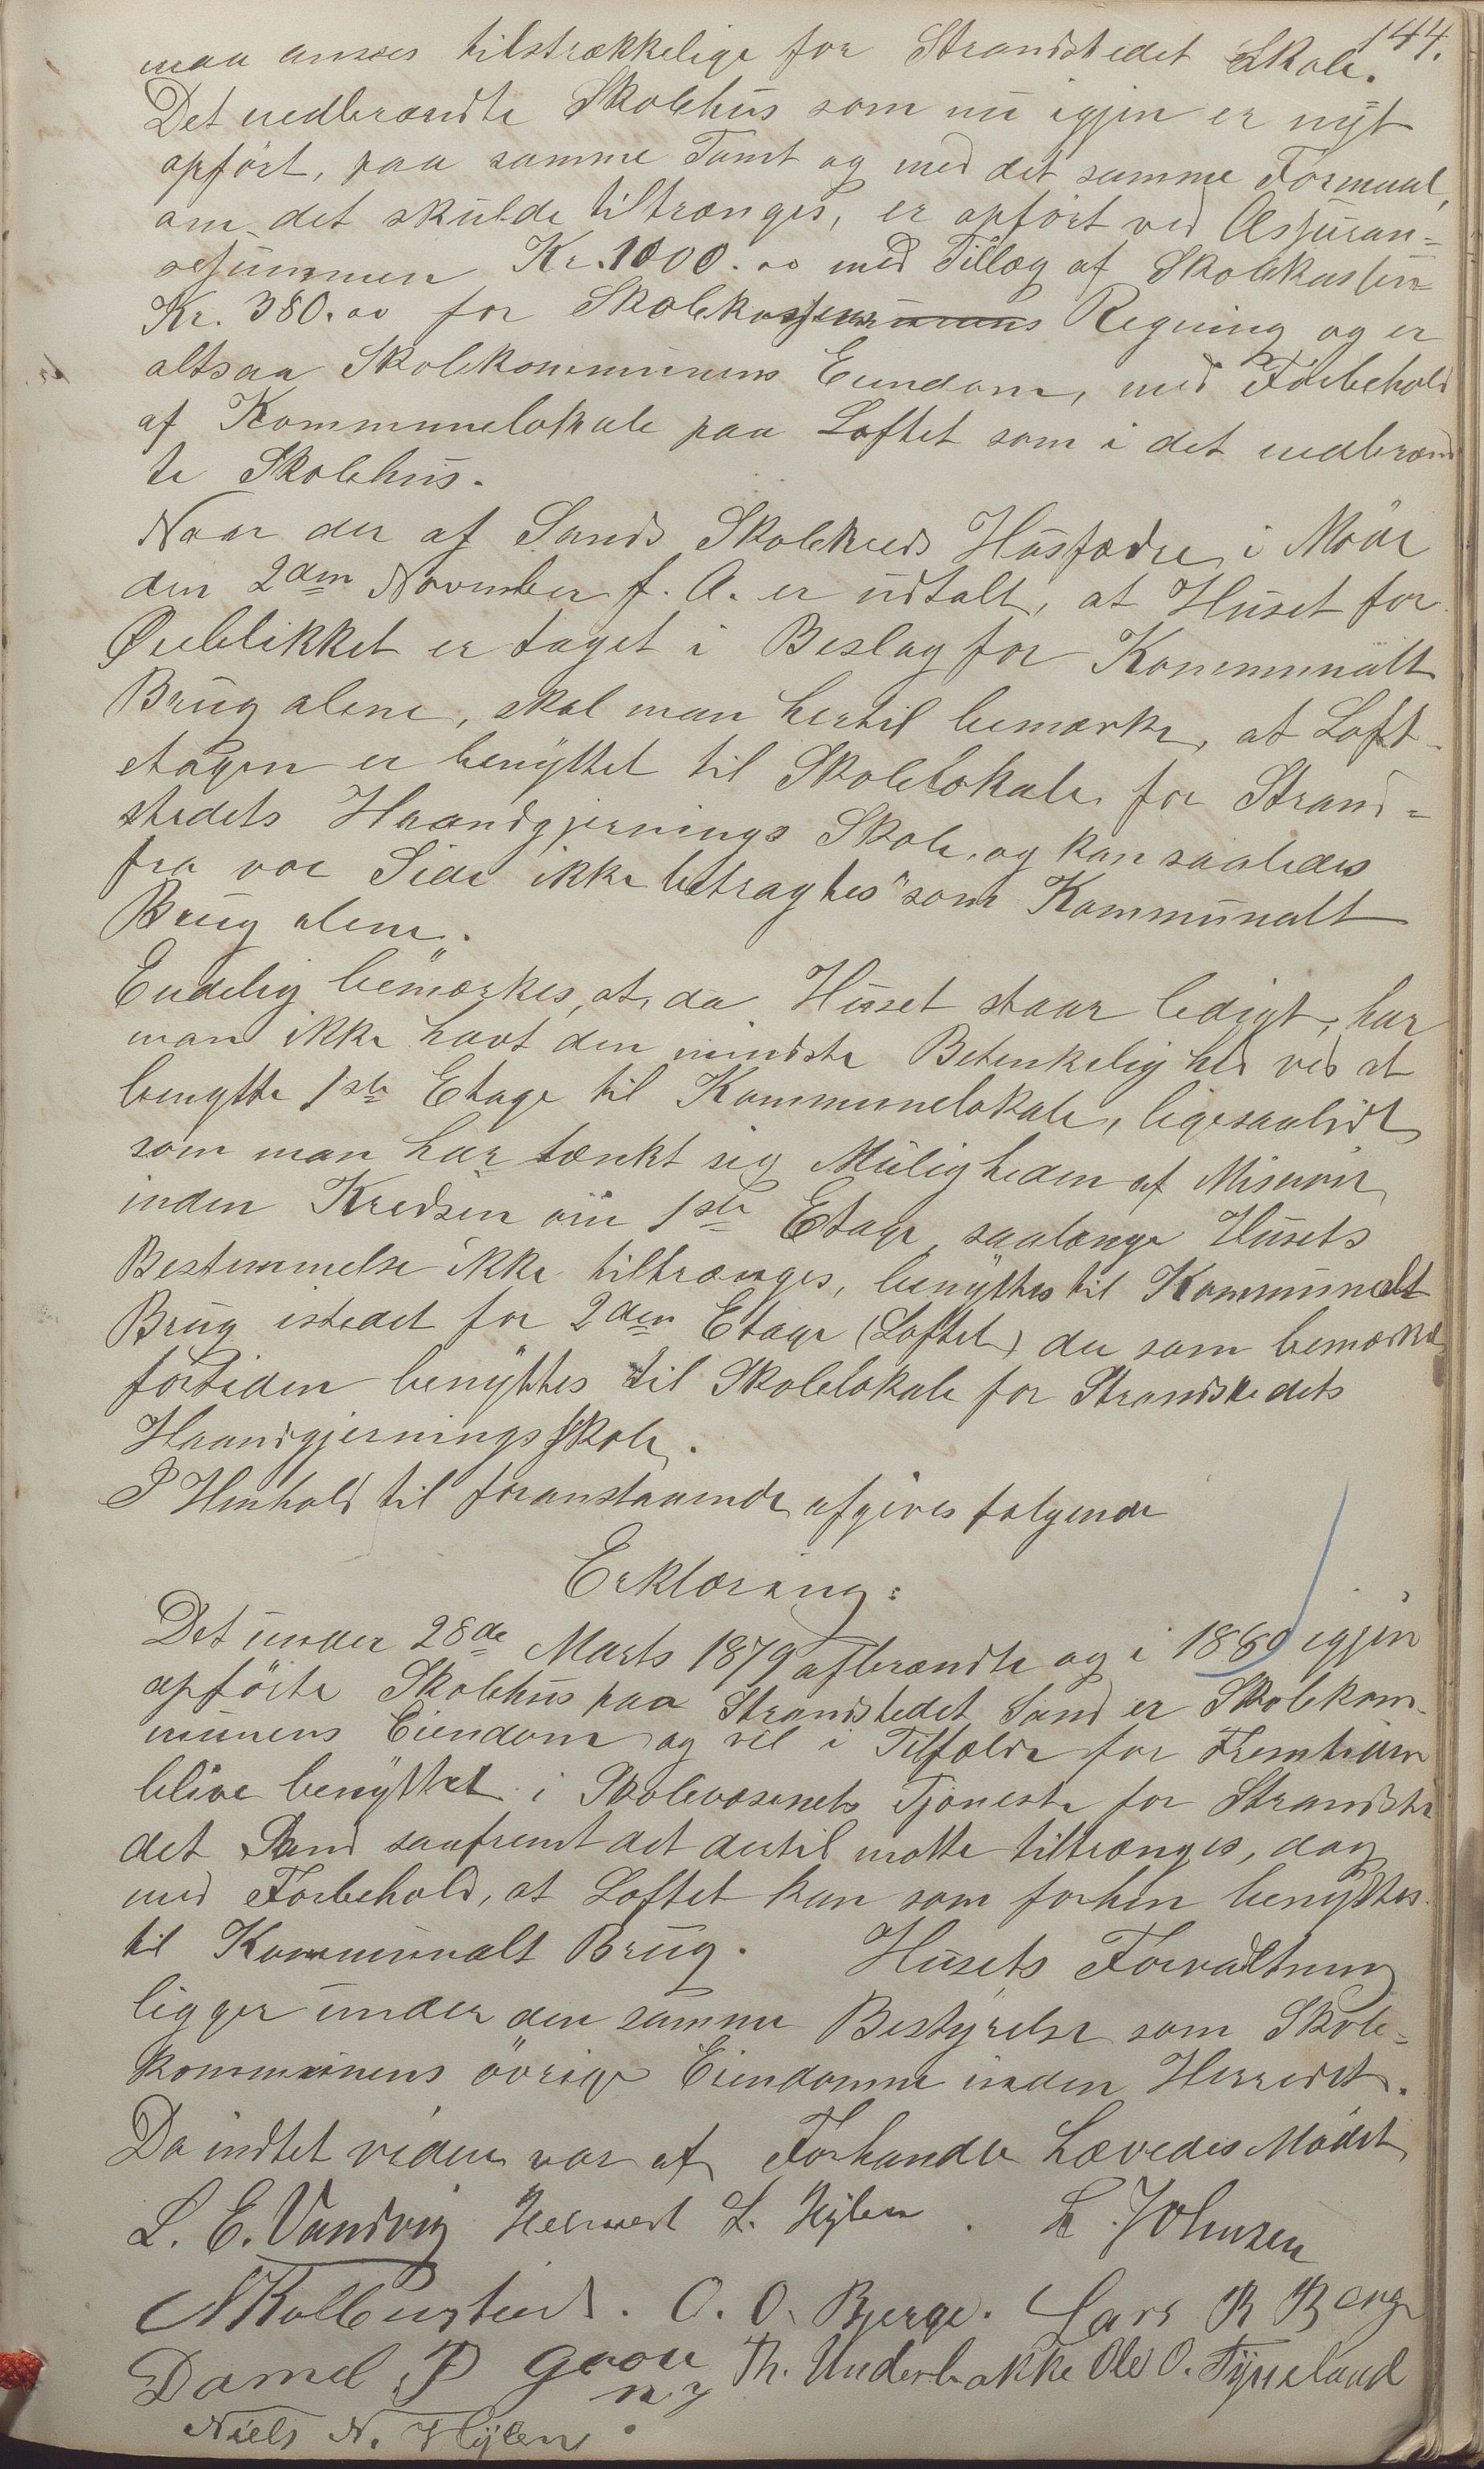 144.
maa ansees tilstrækkelige for Strandstedet Skole.
Det nedbrændte Skolehus som nu igjen er nyt
opført, paa samme Tomt og med det samme Formaal,
om det skulde tiltrænges, er opført ved Assuran=
sesummen Kr. 1000.00 med Tillæg af Skolekassen
Kr. 380.00 for Skolekassens Regning og er
altsaa Skolekommunens Eiendom, med Forbehold
af Kommunelokale paa Loftet som i det nedbrænd
te Skolehus.
Naar der af Sands Skolekreds Husfædre i Møde
den 2den November f. A. er udtalt, at Huset for
Øieblikket er taget i Beslag for Kommunalt
Brug alene, skal man hertil bemærke, at Loft-
etagen er benyttet til Skolelokale for Strand=
stedets Haandgjernings Skole, og kan saaledes
fra vor Side ikke betragtes "som Kommunalt
Brug alene".
Endelig bemærkes, at, da Huset staar ledigt, har
man ikke havt den mindste Betenkelighed ved at
benytte 1ste Etage til Kommunelokale, ligesaalidt
som man har tænkt sig Muligheden af Misnøie
inden Kredsen om 1ste Etage, saalænge Husets
Bestemmelse ikke tiltrænges, benyttes til Kommunalt
Brug istedet for 2den Etage (Loftet) der som bemærket
fortiden benyttes til Skolelokale for Strandstedets
Haandgjerningsskole.
I Henhold til foranstaaende afgives følgende
Erklæring:
Det under 28de Marts 1879 afbrændte og i 1880 igjen
opførte Skolehus paa Strandstedet Sand er Skolekom-
munens Eiendom og vil i Tilfælde for Fremtiden
blive benyttet i Skolevæsenets Tjeneste for Strandste
det Sand saafremt det dertil maatte tiltrænges, dog
med Forbehold, at Loftet kan som forhen benyttes
til Kommunalt Brug. Husets Forvaltning
ligger under den samme Bestyrelse som Skole=
kommunens øvrige Eiendomme inden Herredet.
Da indtet videre var at Forhandle hævedes Mødet
L. E. Vandvig Helmert L. Hylen. L. Johnsen
O. O. Bjerge. Lars R Berge
Daniel P Th. Underbakke Ole O. Tysseland
Niels N. Hylen